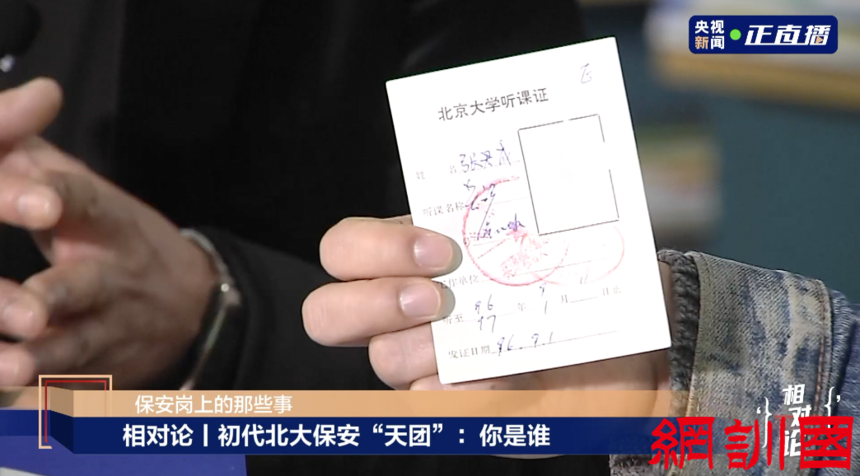 央视
新闻
正直播
北京大学听课证
正
姓 名 张
听课名称
工作单位
听至 96 年 月 日止
97 1
发证日期 96.9.1
保安岗上的那些事
相对论丨初代北大保安“天团”：你是谁
相对论
網訓國